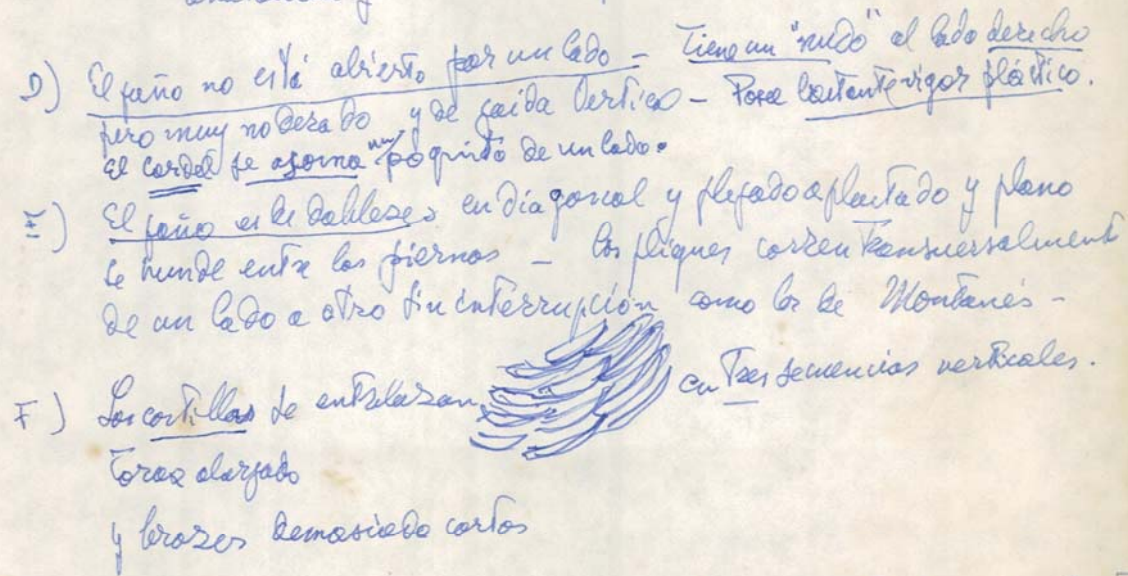 D) El paño no está abierto por un lado - Tiene un "nudo" al lado derecho
pero muy moderado y de caída vertical - Posee bastante vigor plástico.
El cordel se asoma un poquito de un lado.
E) El paño es de dobleces en diagonal y plegado aplastado y plano
se hunde entre las piernas - los pliegues corren transversalment
de un lado a otro sin interrupción como los de Montanés -
F) Las costillas se entrelazan en tres secuencias verticales.
Torax alargado
y brazos demasiado cortos